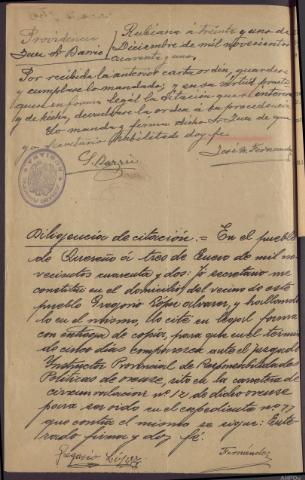 Providencia
Juez Sr. Barrio
Rubiana a treinta y uno de
Diciembre de mil novecientos
cuarenta y uno.
Por recibida la anterior carta orden, guardese
y cumplase lo mandado; y en su virtud practi
quese en forma legal la citación
y de hecho, devuelvase la orden á su procedencia
Lo mandó y firma dicho Sr Juez de que
yo Secretario habilitado doy fe.
S. Barrio
José M. Fernandez
Diligencia de citación. = En el pueblo
de Quereño á tres de Enero de mil no
vecientos cuarenta y dos: Yo secretario me
constituí en el domicilio del vecino de este
pueblo Gregorio López Alvarez, y hallando
lo en el mismo, lo cité en legal forma
con entrega de copia, para que en el termino
de cinco días comparezca ante el juzgado
Instructor Provincial de Responsabilidades
Políticas de Orense, sito de la carretera de
circunvalacion nº 12 de dicho Orense
para ser oido en el expediente nº 77
que contra el mismo se sigue: Ente
rado firma y doy fé.
Gregorio López
Fernández